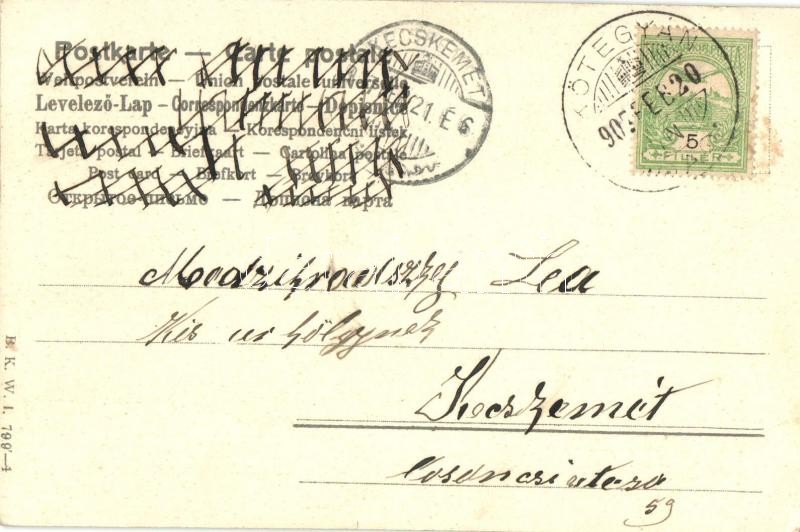 Postkarte — Carte postale
Weltpostverein — Union postale universelle
Levelező-Lap — Correspondenzkarte — Dopisnice
Karta korespondencyjna — Korespondenční lístek
Tarjeta postal — Briefkaart — Cartolina postale
Post card — Brefkort — Brevkort
Открытое письмо — Дописна карта
KECSKEMÉT
21. É 6
KÖTEGYÁN
905 FEB 20
5
FILLÉR
Medzihradszky Lea
Kis úrhölgynek
Kecskemét
Losonczi utcza
59
B. K. W. I. 799-4